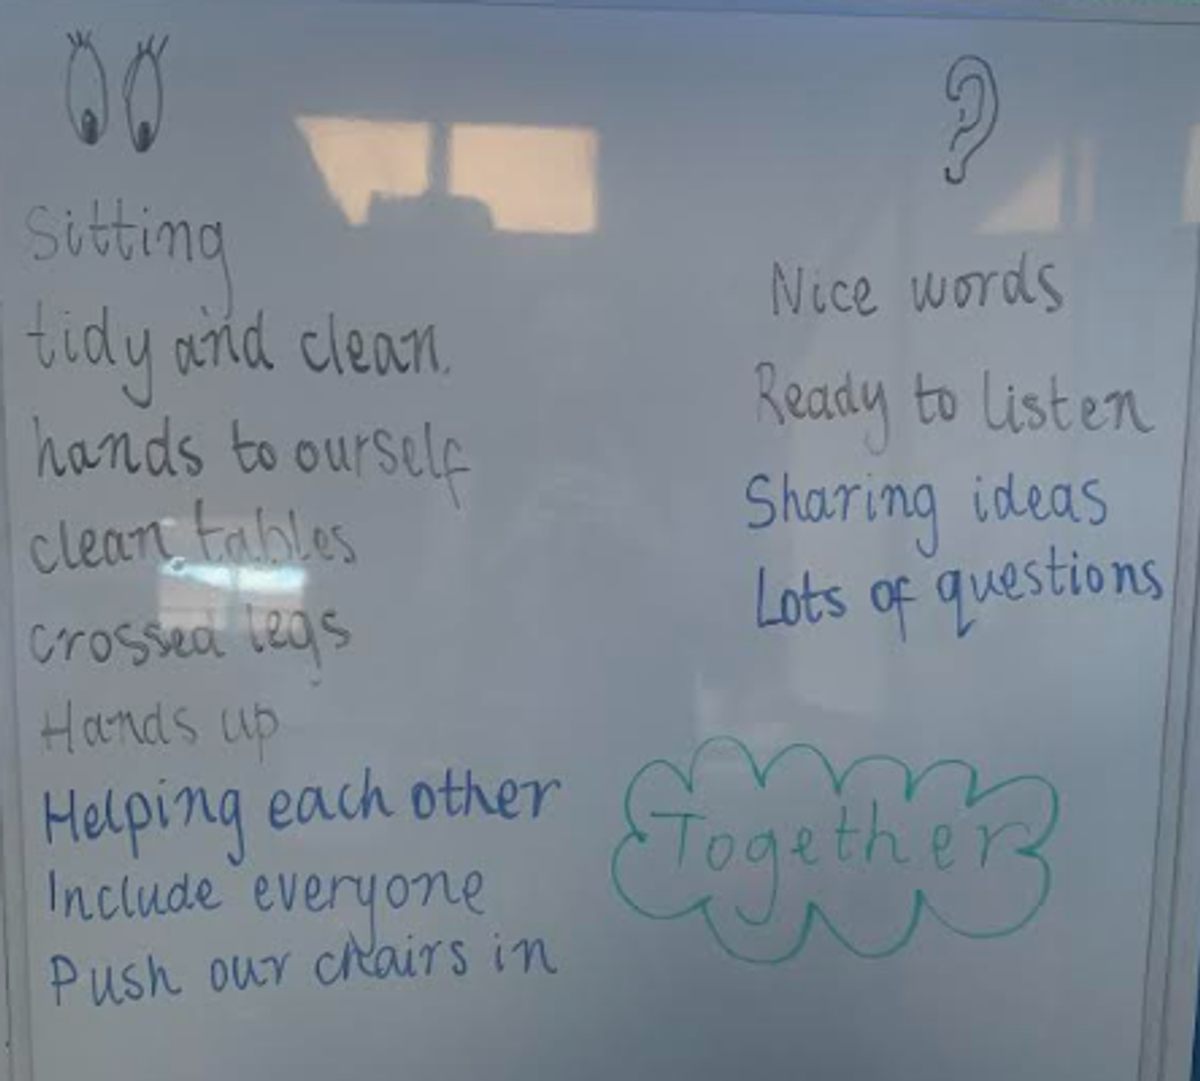 Sitting
tidy and clean.
hands to ourself
clean tables
crossed legs
Hands up
Helping each other
Include everyone
Push our chairs in
Nice words
Ready to listen
Sharing ideas
Lots of questions
Together